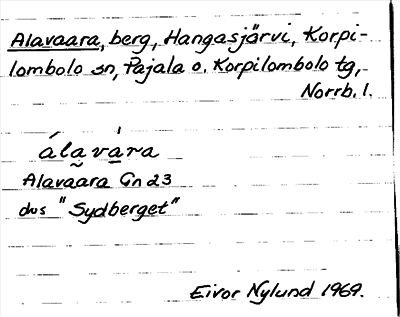 Alavaara, berg, Hangasjärvi, Korpi-
lombolo sn, Pajala o. Korpilombolo tg,
Norrb. l.
álavàra
Alavaara Gn 23
dvs "Sydberget"
Eivor Nylund 1969.